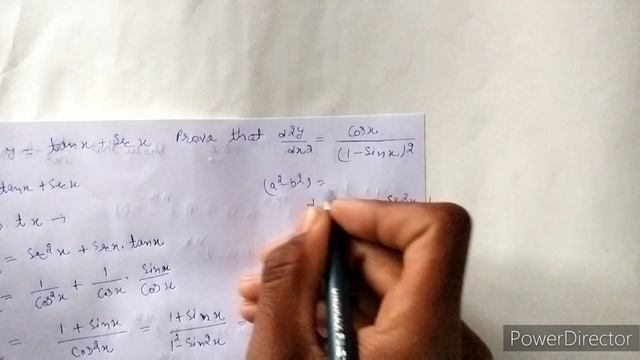 y = tanx + Sec x Prove that d²y/dx² = Cosx/(1-Sinx)²
tanx + Secx
(a²-b²) =
. t x →
= Sec²x + Secx. tanx
= 1/Cos²x + 1/Cosx . Sinx/Cosx
= 1+Sinx/Cos²x = 1+Sinx/1²Sin²x =
PowerDirector